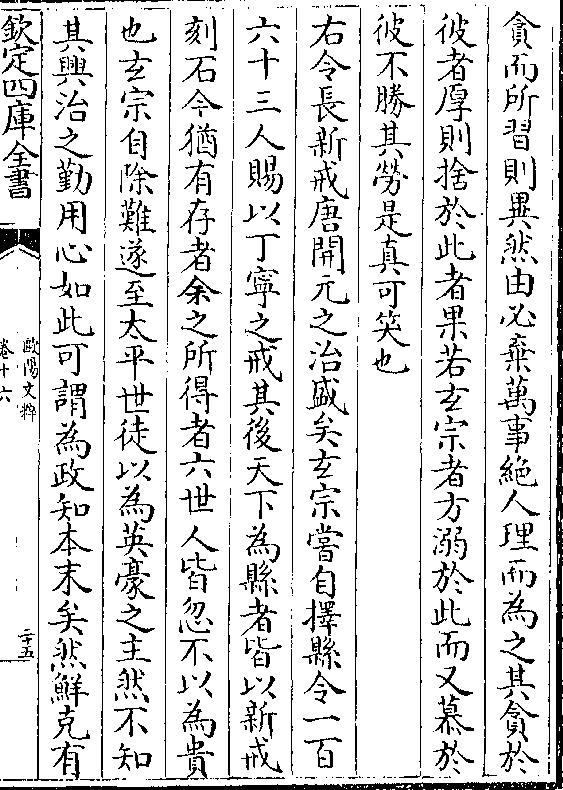 貪而所習則異然由必棄萬事絶人理而為之其貪於
彼者厚則捨於此者果若玄宗者方溺於此而又慕於
彼不勝其勞是真可笑也
右令長新戒唐開元之治盛矣玄宗嘗自擇縣令一百
六十三人賜以丁寧之戒其後天下為縣者皆以新戒
刻石今猶有存者余之所得者六世人皆忽不以為貴
也玄宗自除難遂至太平世徒以為英豪之主然不知
其興治之勤用心如此可謂為政知本末矣然鮮克有
欽定四庫全書
歐陽文粹
卷十六
二十五